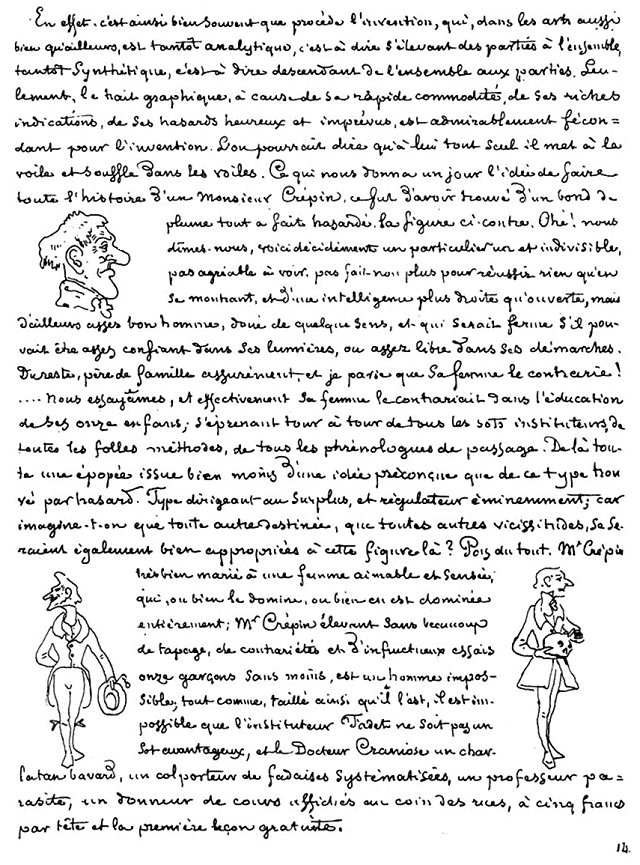 En effet, c'est ainsi bien souvent que procède l'invention, qui, dans les arts aussi
bien qu'ailleurs, est tantôt analytique, c'est à dire s'élevant des parties à l'ensemble,
tantôt synthétique, c'est à dire descendant de l'ensemble aux parties. Seu-
lement, le trait graphique, à cause de sa rapide commodité, de ses riches
indications, de ses hasards heureux et imprévus, est admirablement fécon=
dant pour l'invention. L'on pourrait dire qu'à lui tout seul il met à la
voile et souffle dans les voiles. Ce qui nous donna un jour l'idée de faire
toute l'histoire d'un Monsieur Crépin, ce fut d'avoir trouvé d'un bond de
plume tout à fait hasardé, la figure ci-contre. Ohé! nous
dîmes-nous, voici décidément un particulier un et indivisible,
pas agréable à voir, pas fait non plus pour réussir rien qu'en
se montrant, et d'une intelligence plus droite qu'ouverte, mais
d'ailleurs assez bon homme, doué de quelque sens, et qui serait ferme s'il pou-
vait être assez confiant dans ses lumières, ou assez libre dans ses démarches.
Du reste, père de famille assurément, et je parie que sa femme le contrarie!
.... Nous essayâmes, et effectivement sa femme le contrariait dans l'éducation
de ses onze enfans, s'éprenant tour à tour de tous les sots instituteurs, de
toutes les folles méthodes, de tous les phrénologues de passage. De là tou-
te une épopée issue bien moins d'une idée préconçue que de ce type trou
vé par hasard. Type dirigeant au surplus, et régulateur éminemment; car
imagine-t-on que toute autre destinée, que toutes autres vicissitudes, se se-
raient également bien appropriées à cette figure là? Pas du tout. Mr Crépin
très bien marié à une femme aimable et sensée,
qui, ou bien le domine, ou bien en est dominée
entièrement; Mr Crépin élevant sans beaucoup
de tapage, de contrariétés et d'infructueux essais
onze garçons sans moins, est un homme impos-
sible; tout comme, taillé ainsi qu'il l'est, il est im-
possible que l'instituteur Fadet ne soit pas un
sot avantageux, et le Docteur Craniose un char-
latan bavard, un colporteur de fadaises systématisées, un professeur pa-
rasite, un donneur de cours affichés au coin des rues, à cinq francs
par tête et la première leçon gratuite.
14.